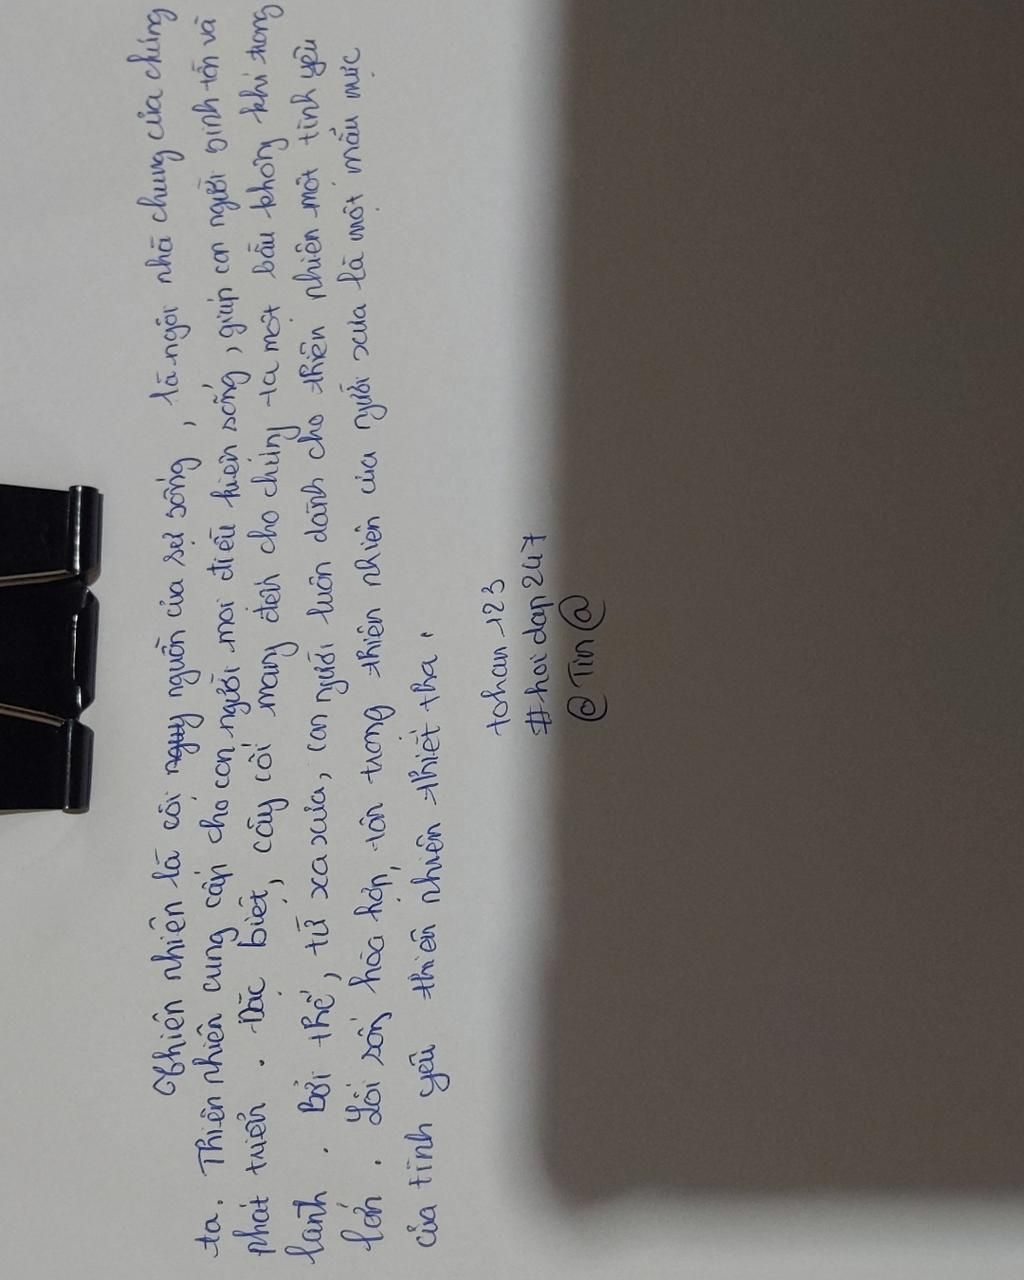 Thiên nhiên là cội nguồn của sự sống, là ngôi nhà chung của chúng
ta. Thiên nhiên cung cấp cho con người mọi điều kiện sống, giúp con người sinh tồn và
phát triển. Đặc biệt, cây cối mang đến cho chúng ta một bầu không khí trong
lành. Bởi thế, từ xa xưa, con người luôn dành cho thiên nhiên một tình yêu
lớn. Lối sống hòa hợp, tôn trọng thiên nhiên của người xưa là một mẫu mực
của tình yêu thiên nhiên thiết tha.
tohan-123
#hoidap247
@Tin@